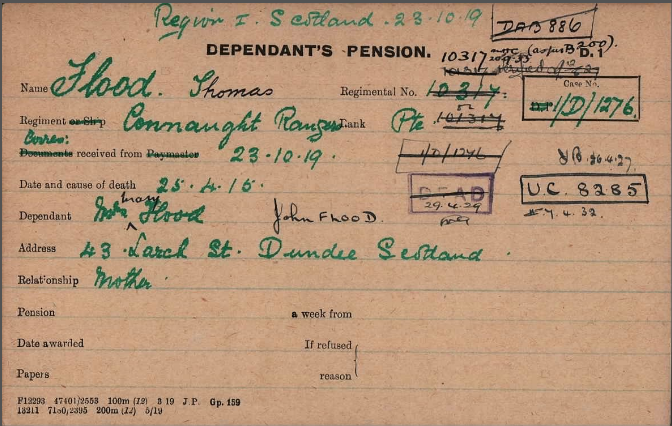 Region I. Scotland. 23.10.19
DAB 886
DEPENDANT'S PENSION.
10317
D.1
Name Flood. Thomas
Regimental No. 10317.
or
101317
Case No.
D.P. 1/D/1276.
Regiment or Ship Connaught Rangers
Rank Pte
Corres:
Documents received from Paymaster 23.10.19.
1/D/1276
26.4.27.
Date and cause of death 25.4.15.
DEAD
29.4.29
U.C. 8285
7.4.32.
Dependant Mrs Mary Flood
John FLOOD.
Address 43 Larch St. Dundee Scotland
Relationship Mother
Pension a week from
Date awarded If refused
Papers reason
F12293 47401/2553 100m (12) 3 19 J.P. Gp. 159
13211 7180/2395 200m (12) 5/19